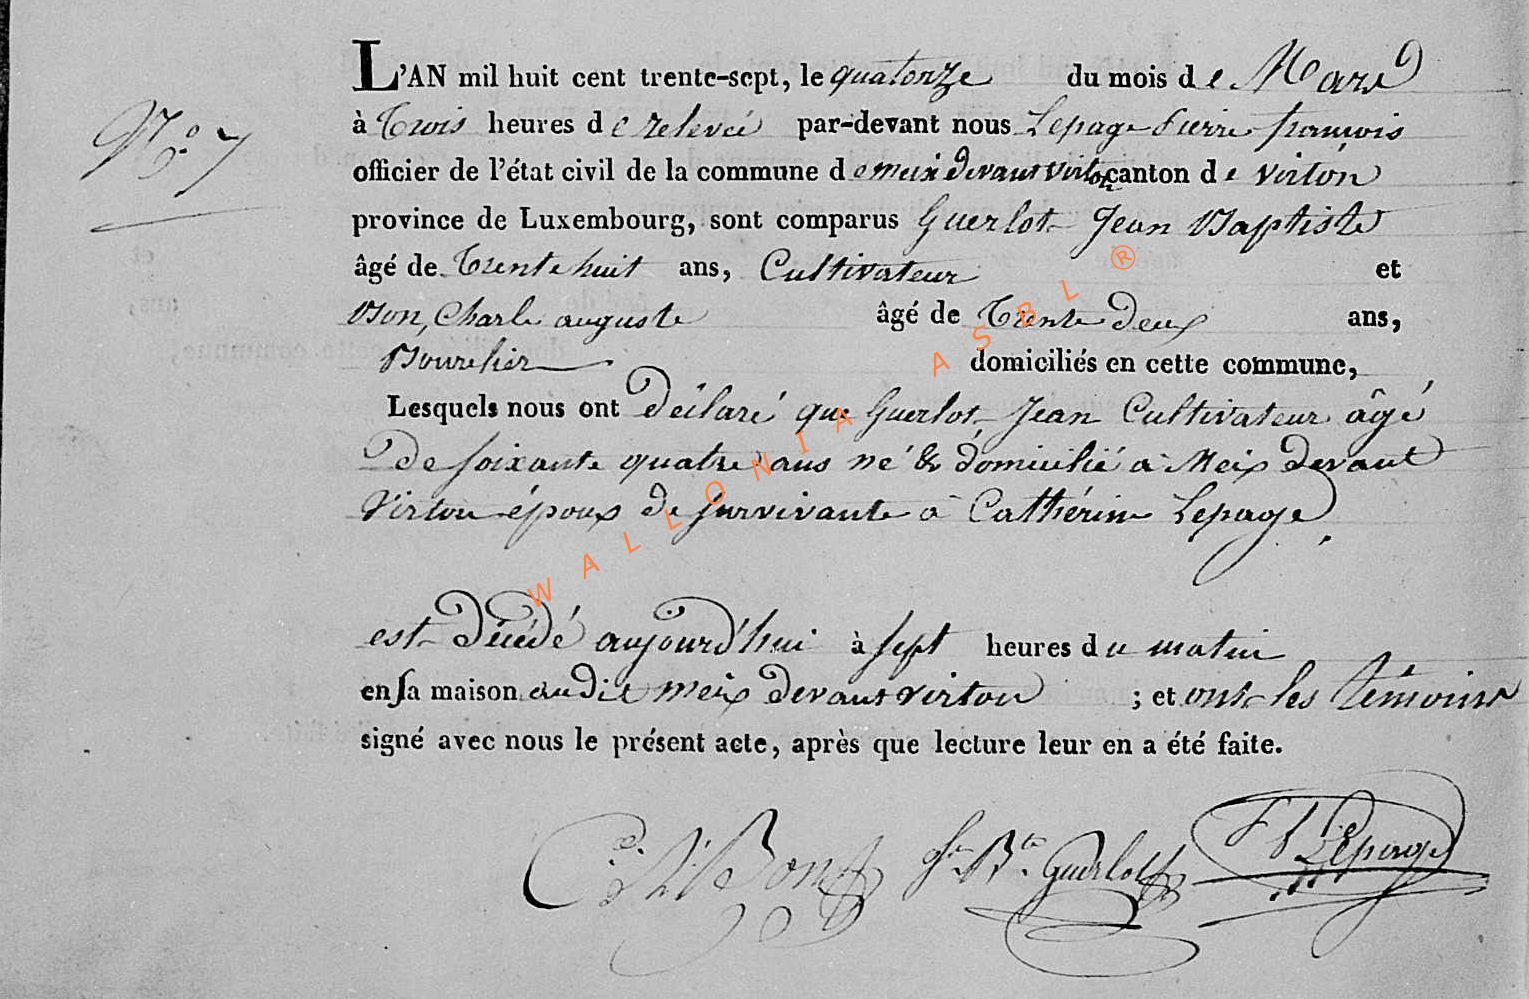 L'AN mil huit cent trente-sept, le quatorze du mois de Mars
N.o 7
à Trois heures de relevée par-devant nous Lepage Pierre françois
officier de l'état civil de la commune de meix devant virton canton de virton
province de Luxembourg, sont comparus Guerlot Jean Baptiste
âgé de Trente huit ans, Cultivateur et
Bon, Charle auguste âgé de Trente deux ans,
Bourelier domiciliés en cette commune,
Lesquels nous ont déclaré que Guerlot Jean Cultivateur âgé
de soixante quatre ans né & domicilié à Meix devant
Virton époux de survivante à Cathérine Lepage,
est Décédé aujourd'hui à sept heures du matin
en sa maison audit meix devant virton ; et ont les témoins
signé avec nous le présent acte, après que lecture leur en a été faite.
Bon Jn. Bte. Guerlot Lepage
WALLONIA ASBL ®